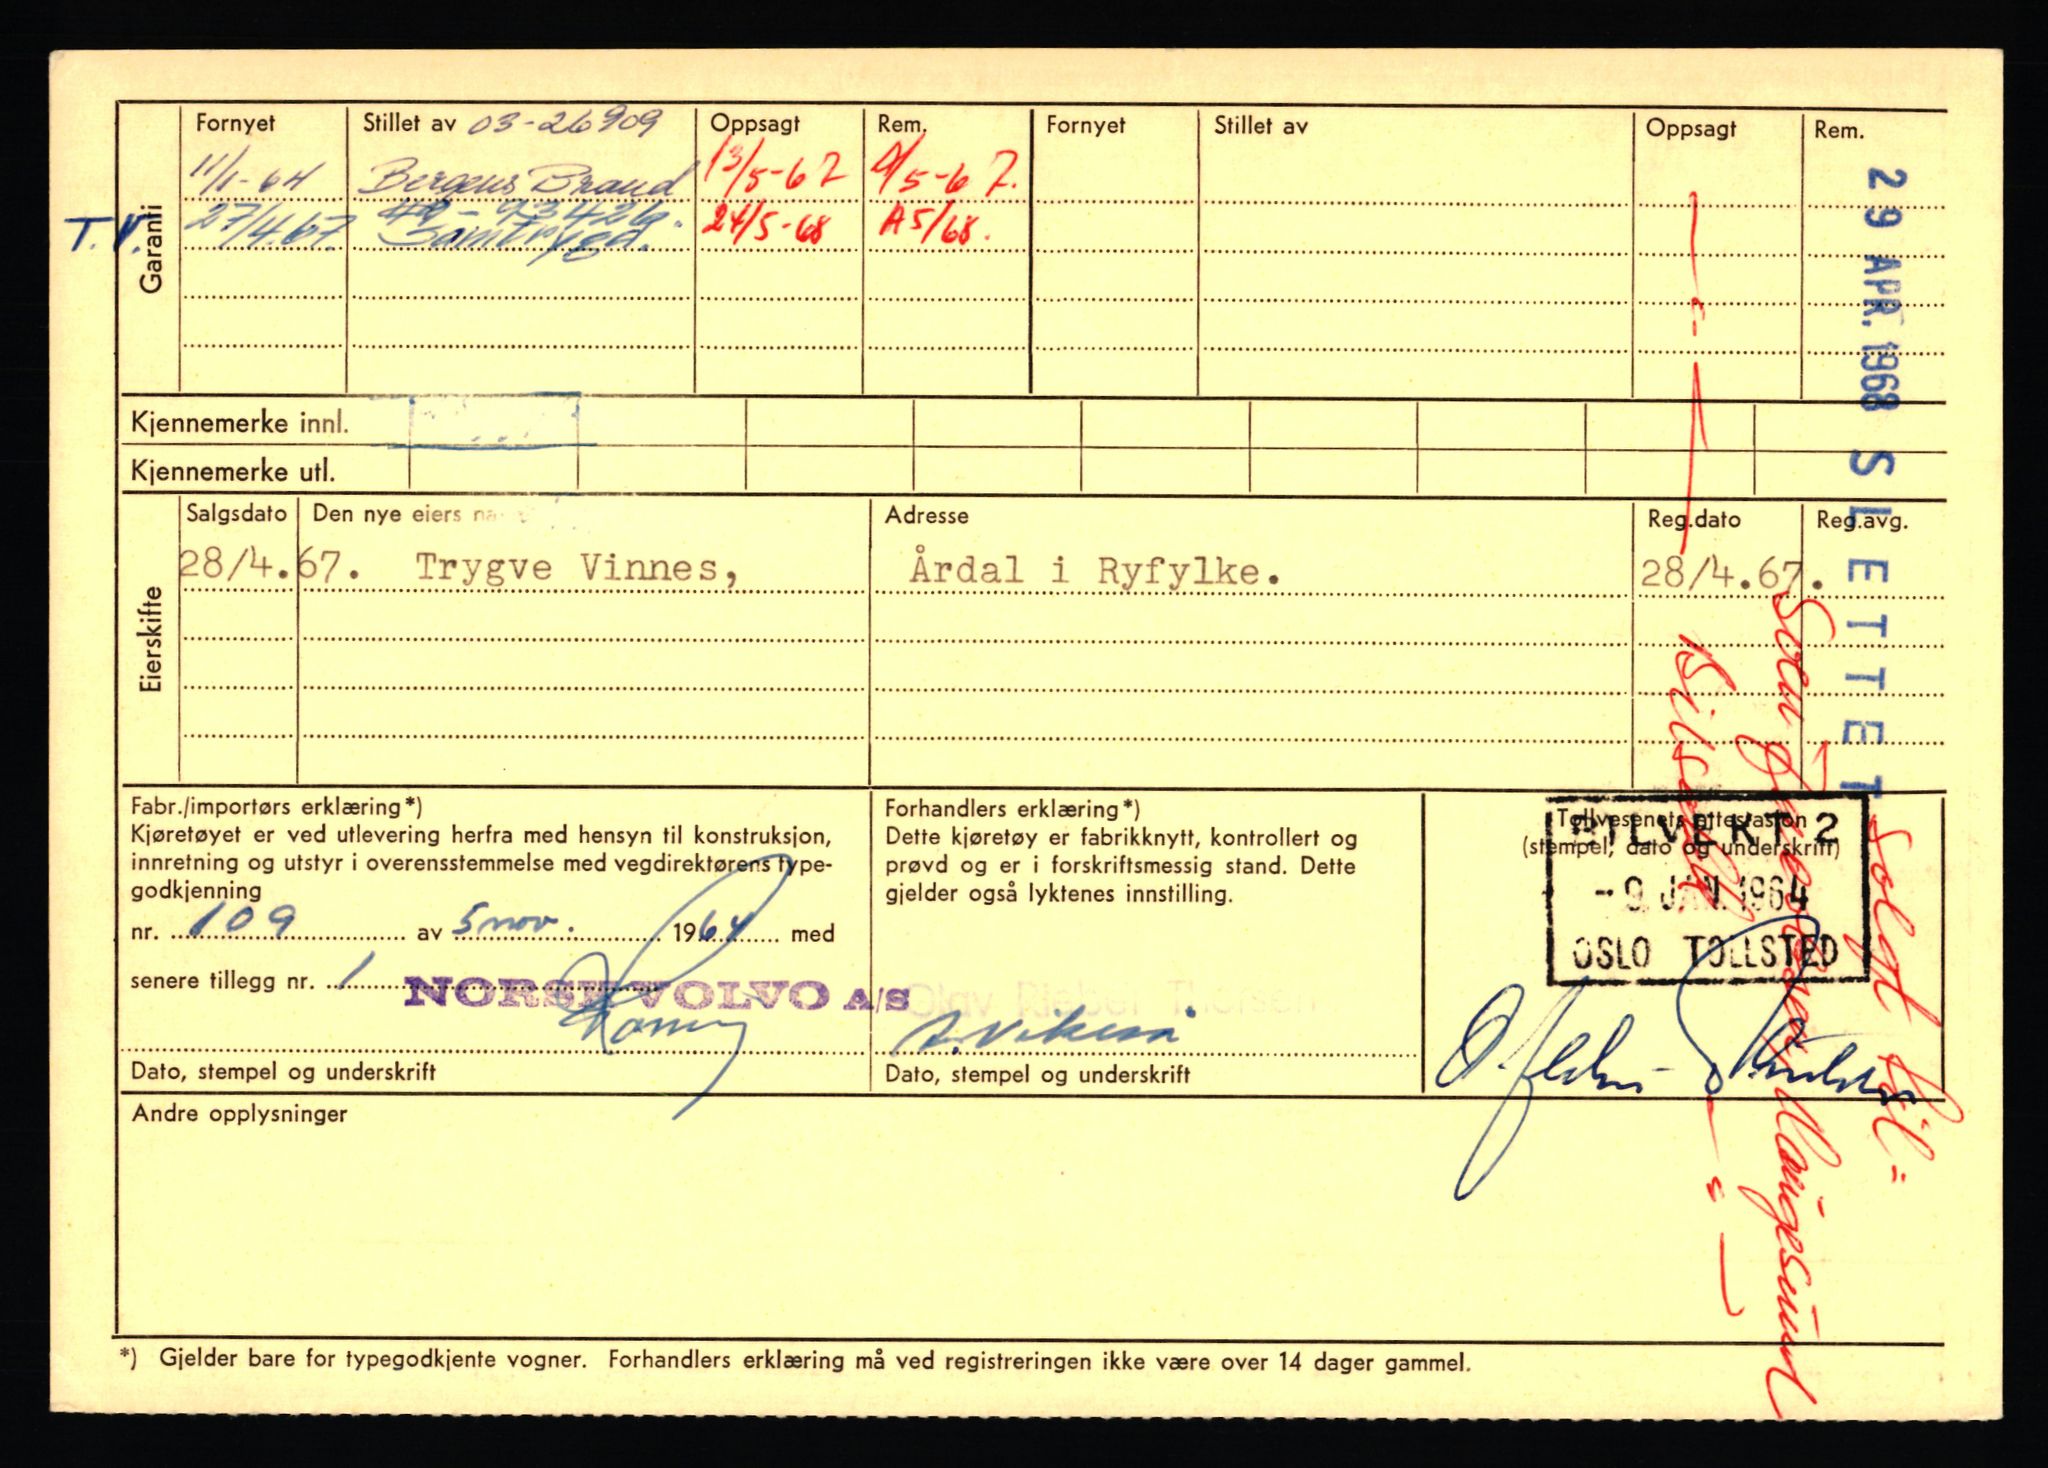 Fornyet Stillet av 03-26909 Oppsagt Rem. Fornyet Stillet av Oppsagt Rem.
11/1-64 Bergens Brand 13/5-67 A/5-67.
T.V. 27/4.67. 42-93426. 24/5-68 A5/68.
Samtrygd.
Garanti
29 APR. 1968 SLETTET
Kjennemerke innl.
Kjennemerke utl.
Eierskifte
Salgsdato Den nye eiers Adresse Reg.dato Reg.avg.
28/4.67. Trygve Vinnes, Årdal i Ryfylke. 28/4.67.
solgt til =
Bilsalg
Fabr./importørs erklæring*)
Kjøretøyet er ved utlevering herfra med hensyn til konstruksjon,
innretning og utstyr i overensstemmelse med vegdirektørens type-
godkjenning
nr. 109 av 5 nov. 1964 med
senere tillegg nr. 1
NORSK VOLVO A/S
Dato, stempel og underskrift
Forhandlers erklæring*)
Dette kjøretøy er fabrikknytt, kontrollert og
prøvd og er i forskriftsmessig stand. Dette
gjelder også lyktenes innstilling.
Dato, stempel og underskrift
Tollvesenets attestasjon
(stempel, dato og underskrift)
BILVEKT 2
-9. JAN. 1964
OSLO TOLLSTED
Andre opplysninger
*) Gjelder bare for typegodkjente vogner. Forhandlers erklæring må ved registreringen ikke være over 14 dager gammel.